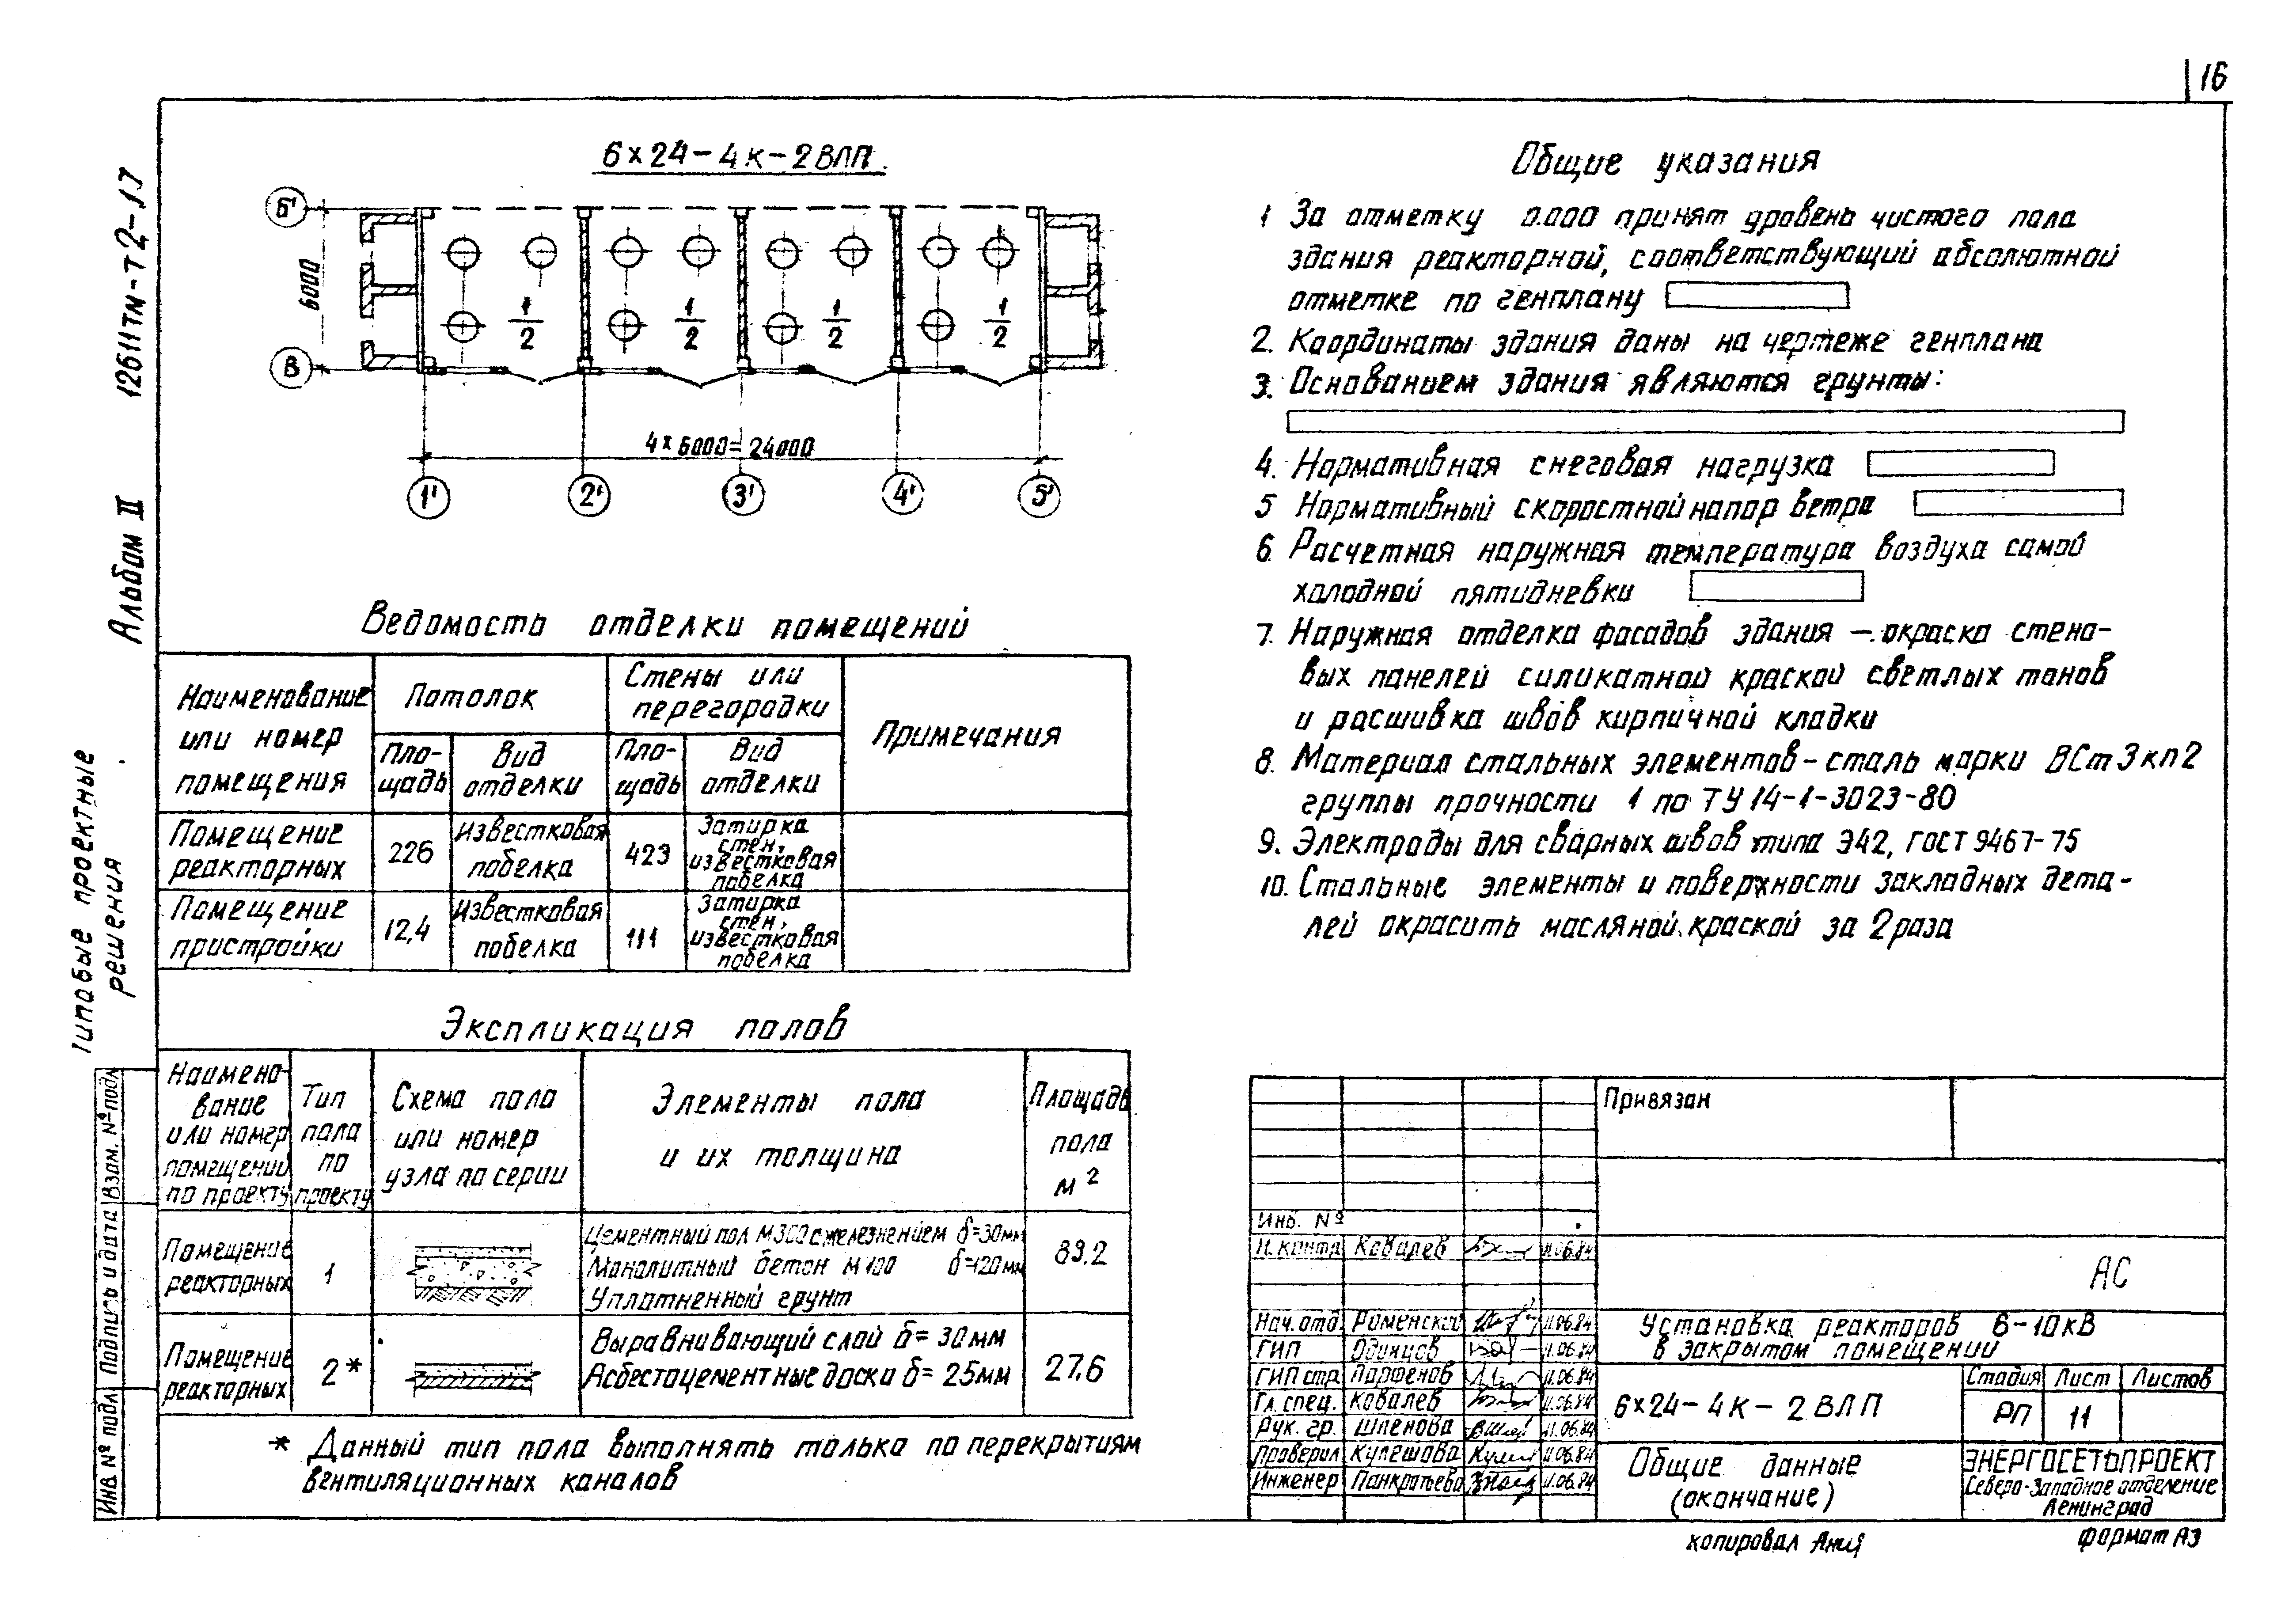 16
12611тм-т2-17
Альбом II
Типовые проектные
решения
6×24-4К-2ВЛП
Б'
В
6000
1/2
1/2
1/2
1/2
4×6000=24000
1'
2'
3'
4'
5'
Ведомость отделки помещений
Наименование
или номер
помещения
Потолок
Стены или
перегородки
Примечания
Пло-
щадь
Вид
отделки
Пло-
щадь
Вид
отделки
Помещение
реакторных
226
Известковая
побелка
423
Затирка
стен,
известковая
побелка
Помещение
пристройки
12,4
Известковая
побелка
111
Затирка
стен,
известковая
побелка
Экспликация полов
Наимено-
вание
или номер
помещений
по проекту
Тип
пола
по
проекту
Схема пола
или номер
узла по серии
Элементы пола
и их толщина
Площадь
пола
м²
Помещение
реакторных
1
Цементный пол М300 с железнением δ=30мм
Монолитный бетон М100 δ=120мм
Уплотненный грунт
83.2
Помещение
реакторных
2*
Выравнивающий слой δ=30мм
Асбестоцементные доски δ=25мм
27.6
* Данный тип пола выполнять только по перекрытиям
вентиляционных каналов
Общие указания
1 За отметку 0.000 принят уровень чистого пола
здания реакторной, соответствующий абсолютной
отметке по генплану
2. Координаты здания даны на чертеже генплана
3. Основанием здания являются грунты:
4. Нормативная снеговая нагрузка
5 Нормативный скоростной напор ветра
6 Расчетная наружная температура воздуха самой
холодной пятидневки
7. Наружная отделка фасадов здания – окраска стено-
вых панелей силикатной краской светлых тонов
и расшивка швов кирпичной кладки
8. Материал стальных элементов – сталь марки ВСт3кп2
группы прочности 1 по ТУ 14-1-3023-80
9. Электроды для сварных швов типа Э42, ГОСТ 9467-75
10. Стальные элементы и поверхности закладных дета-
лей окрасить масляной краской за 2 раза
Привязан
Инв. №
Н.контр. Ковалев 11.06.84
АС
Нач.отд. Роменский 11.06.84
ГИП Одинцов 11.06.84
ГИП стр. Парфенов 11.06.84
Гл. спец. Ковалев 11.06.84
Рук. гр. Шленова 11.06.84
Проверил Кулешова 11.06.84
Инженер Панкратьева 11.06.84
Установка реакторов 6-10кВ
в закрытом помещении
6×24-4К-2ВЛП
Стадия Лист Листов
РП 11
Общие данные
(окончание)
ЭНЕРГОСЕТЬПРОЕКТ
Северо-Западное отделение
Ленинград
копировал
формат А3
Взам. № подл
Подпись и дата
Инв № подл